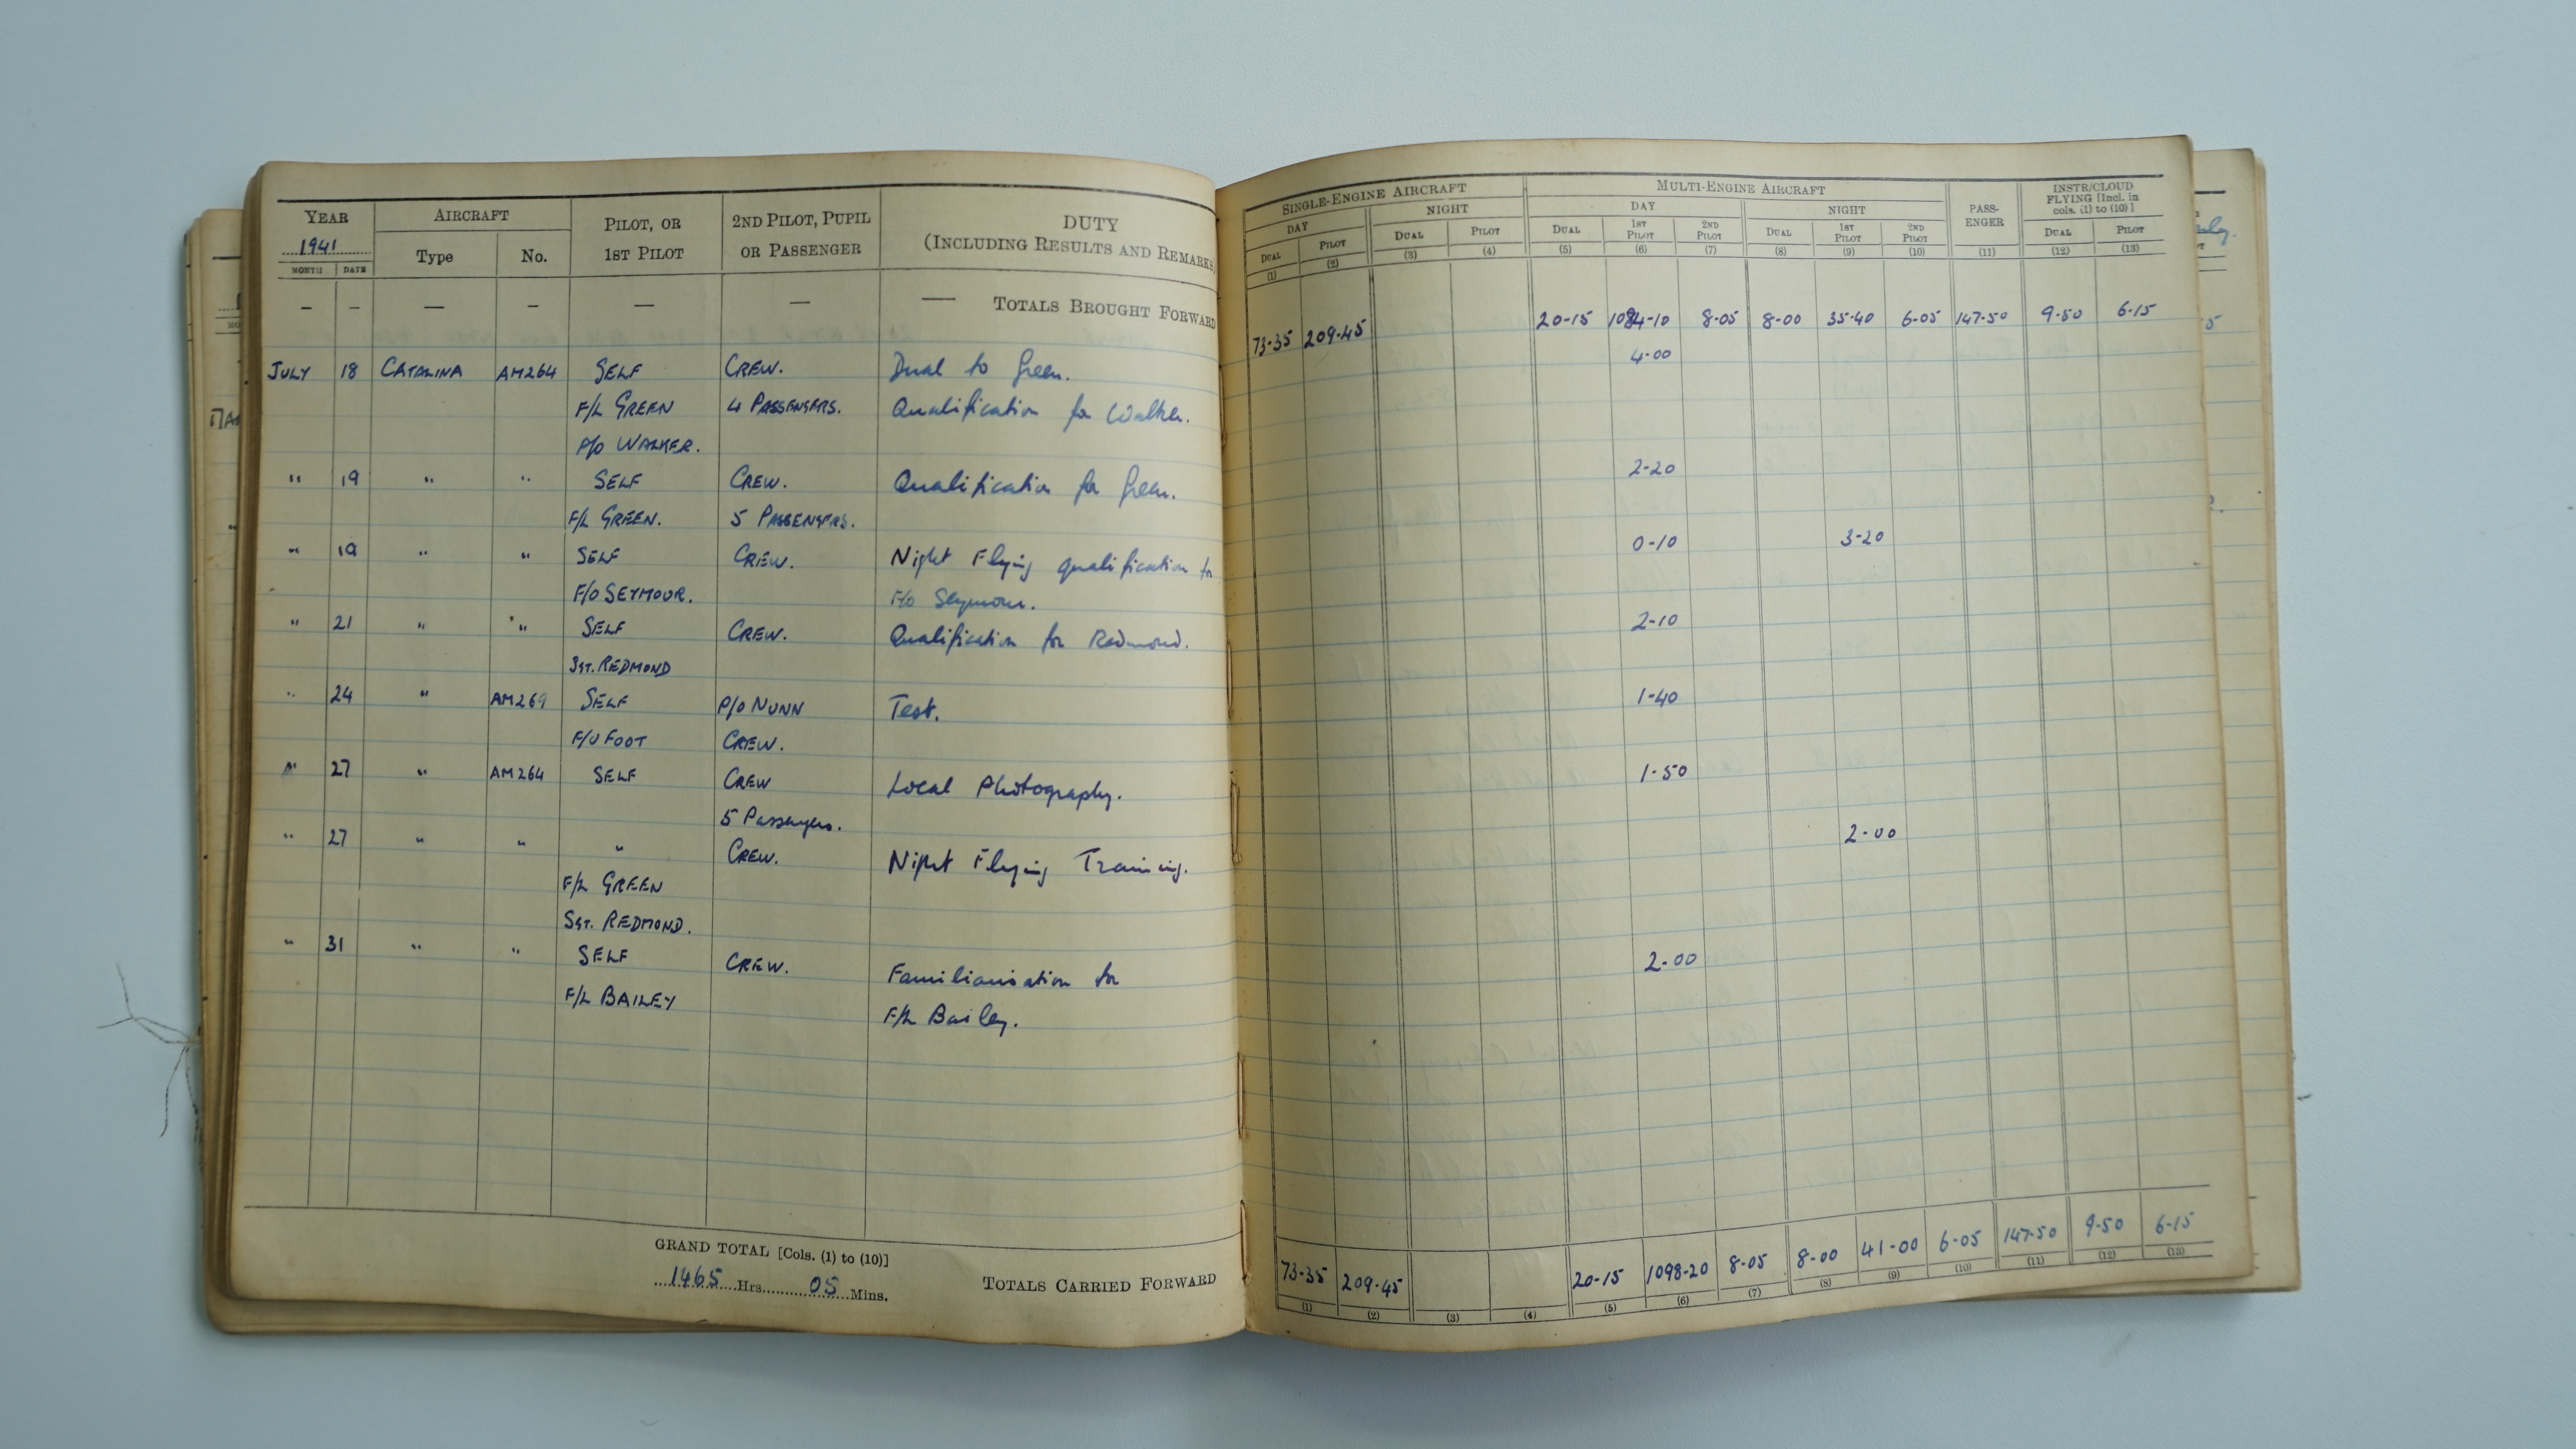 YEAR AIRCRAFT PILOT, OR 2ND PILOT, PUPIL DUTY
1941 Type No. 1ST PILOT OR PASSENGER (INCLUDING RESULTS AND REMARKS)
MONTH DATE
— — — — — — — TOTALS BROUGHT FORWARD
JULY 18 CATALINA AM264 SELF CREW. Dual to Green.
F/L GREEN 4 PASSENGERS. Qualification for Walker.
P/O WALKER.
" 19 " " SELF CREW. Qualification for Green.
F/L GREEN. 5 PASSENGERS.
" 19 " " SELF CREW. Night Flying qualification for
F/O SEYMOUR. F/O Seymour.
" 21 " " SELF CREW. Qualification for Redmond.
SGT. REDMOND
" 24 " AM269 SELF P/O NUNN Test.
F/O FOOT CREW.
" 27 " AM264 SELF CREW Local Photography.
5 Passengers.
" 27 " " " CREW. Night Flying Training.
F/L GREEN
SGT. REDMOND.
" 31 " " SELF CREW. Familiarisation for
F/L BAILEY F/L Bailey.
GRAND TOTAL [Cols. (1) to (10)]
1465 Hrs. 05 Mins. TOTALS CARRIED FORWARD
SINGLE-ENGINE AIRCRAFT MULTI-ENGINE AIRCRAFT PASS-ENGER INSTR/CLOUD
FLYING [Incl. in
cols. (1) to (10)]
DAY NIGHT DAY NIGHT
DUAL PILOT DUAL PILOT DUAL 1ST PILOT 2ND PILOT DUAL 1ST PILOT 2ND PILOT DUAL PILOT
(1) (2) (3) (4) (5) (6) (7) (8) (9) (10) (11) (12) (13)
73-35 209-45 20-15 1084-10 8-05 8-00 35-40 6-05 147-50 9-50 6-15
4-00
2-20
0-10 3-20
2-10
1-40
1-50
2-00
2-00
73-35 209-45 20-15 1098-20 8-05 8-00 41-00 6-05 147-50 9-50 6-15
(1) (2) (3) (4) (5) (6) (7) (8) (9) (10) (11) (12) (13)